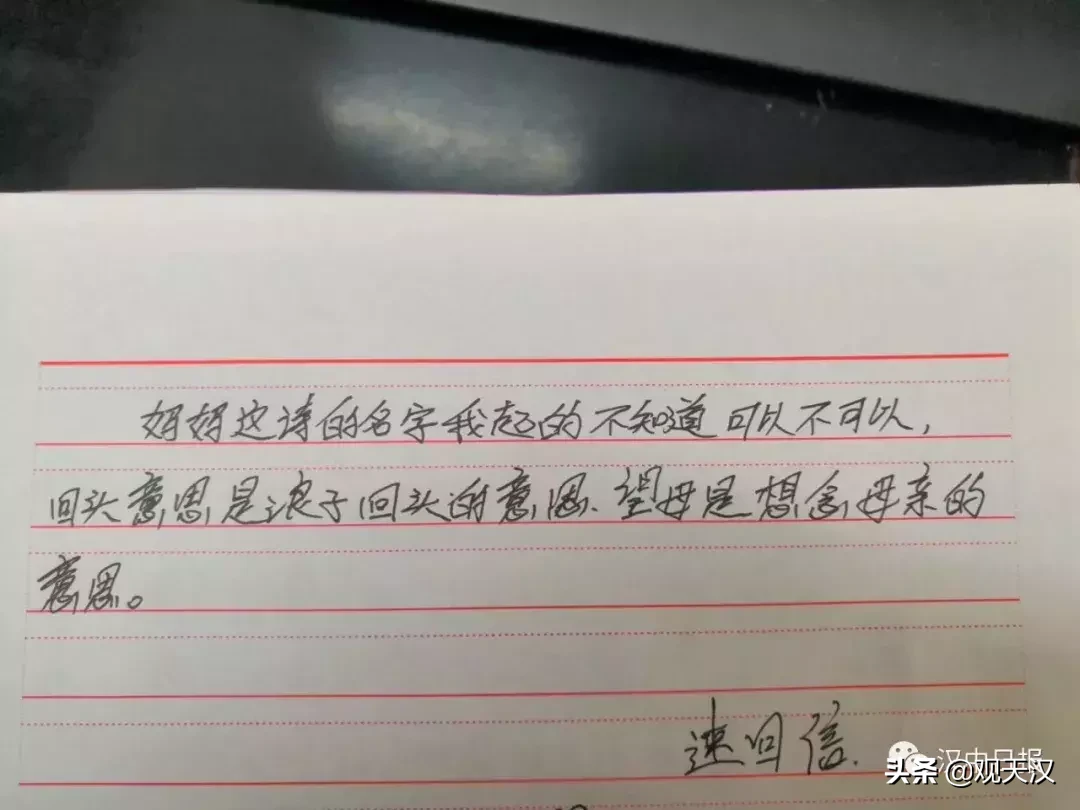 妈妈这诗的名字我起的不知道可以不可以，
回头意思是浪子回头的意思、望母是想念母亲的
意思。
速回信.
汉中日报
头条 @观天汉